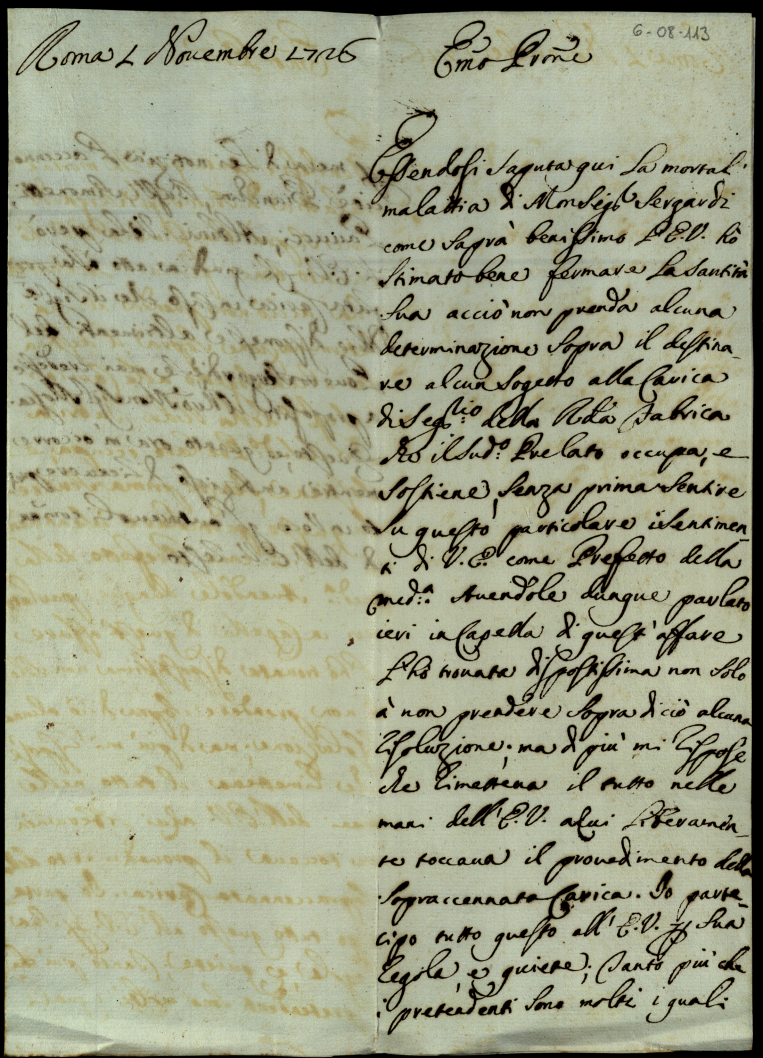 6-08-113
Roma 1 Novembre 1726
Emo Prone
Essendosi saputa qui la mortal
malattia di Monsigr Sergardi
come saprà benissimo l'E.V. hò
stimato bene fermare la Santità
Sua acciò non prenda alcuna
determinazione sopra il destina-
re alcun sogetto alla Carica
di Segrio della Rda Fabrica
che il sudo Prelato occupa, e
sostiene, senza prima sentire
su questo particolare i sentimen-
ti di V.E. come Prefetto della
meda Avendole dunque parlato
ieri in Capella di quest'affare
l'hò trovata dispostissima non solo
à non prendere sopra di ciò alcuna
risoluzione; ma di più mi rispose
che rimetteva il tutto nelle
mani dell'E.V. a cui liberamen-
te toccava il provedimento della
sopraccennata Carica. Io parte-
cipo tutto questo all'E.V. per sua
regola, e quiete; tanto più che
i pretendenti sono molti i quali